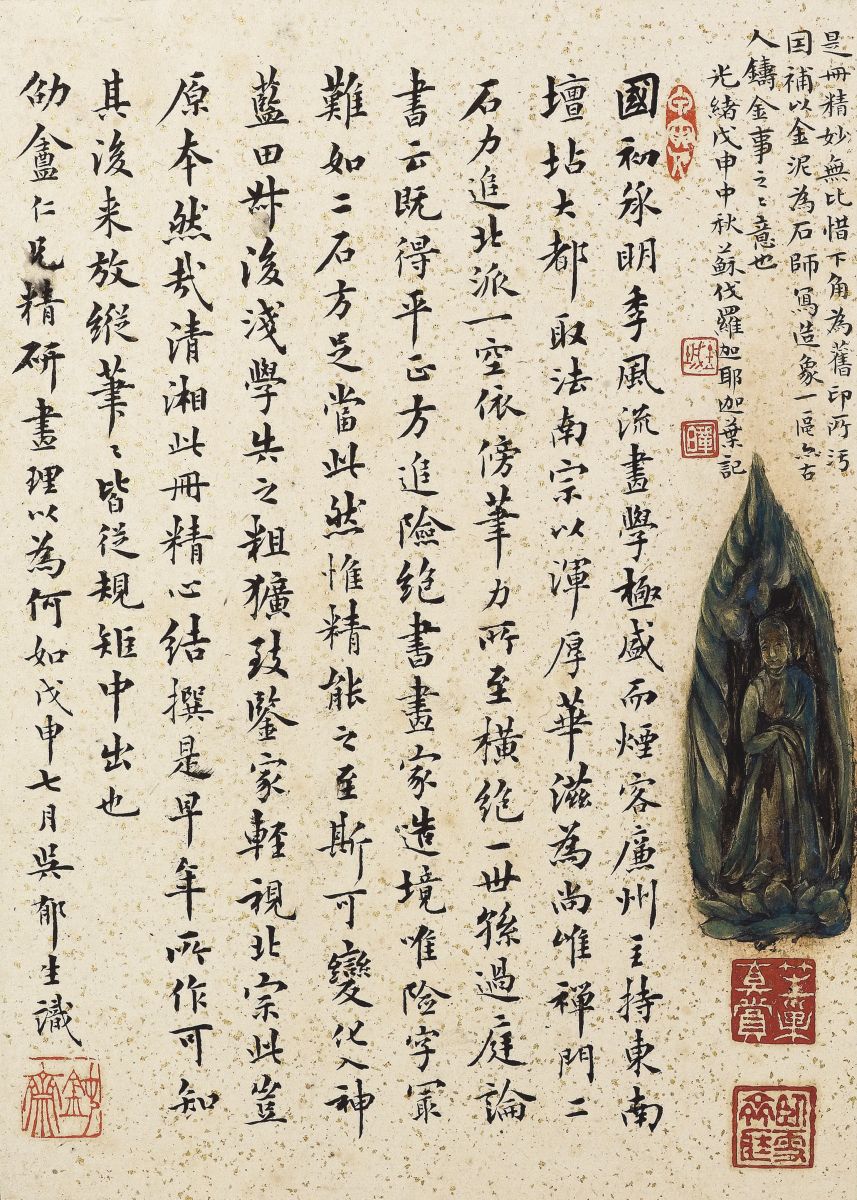 是冊精妙無比惜下角為舊印所污
因補以金泥為石師寫造象一區亦古
人鑄金事之之意也
光緒戊申中秋蘇伐羅加耶迦葉記
國初承明季風流畫學極盛而煙客廉州主持東南
壇坫大都取法南宗以渾厚華滋為尚惟禪門二
石力追北派一空依傍筆力所至橫絕一世孫過庭論
書云既得平正方追險絕書畫家造境唯險字冣
難如二石方足當此然惟精能之至斯可變化入神
藍田叔後淺學失之粗獷致鑒家輕視北宗此豈
原本然哉清湘此冊精心結撰是早年所作可知
其後来放縱筆筆皆從規矩中出也
劬盦仁兄精研畫理以為何如戊申七月吳郁生識